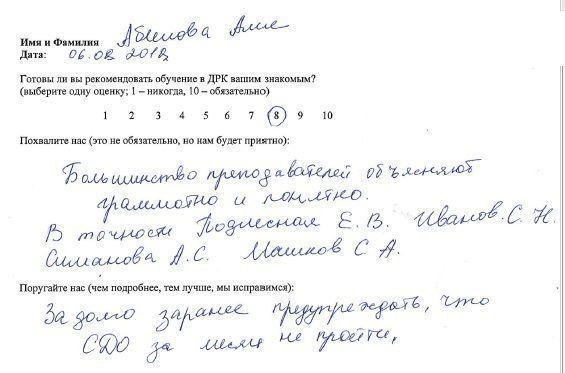 Имя и Фамилия Абилова Алие
Дата: 06.02.2012
Готовы ли вы рекомендовать обучение в ДРК вашим знакомым?
(выберите одну оценку; 1 – никогда, 10 – обязательно)
1 2 3 4 5 6 7 8 9 10
Похвалите нас (это не обязательно, но нам будет приятно):
Большинство преподавателей объясняют
граммотно и понятно.
В точности Подлесная Е. В. Иванов. С. Н.
Симанова А.С. Машков С. А.
Поругайте нас (чем подробнее, тем лучше, мы исправимся):
За долго заранее предупреждать, что
СДО за месяц не пройти,